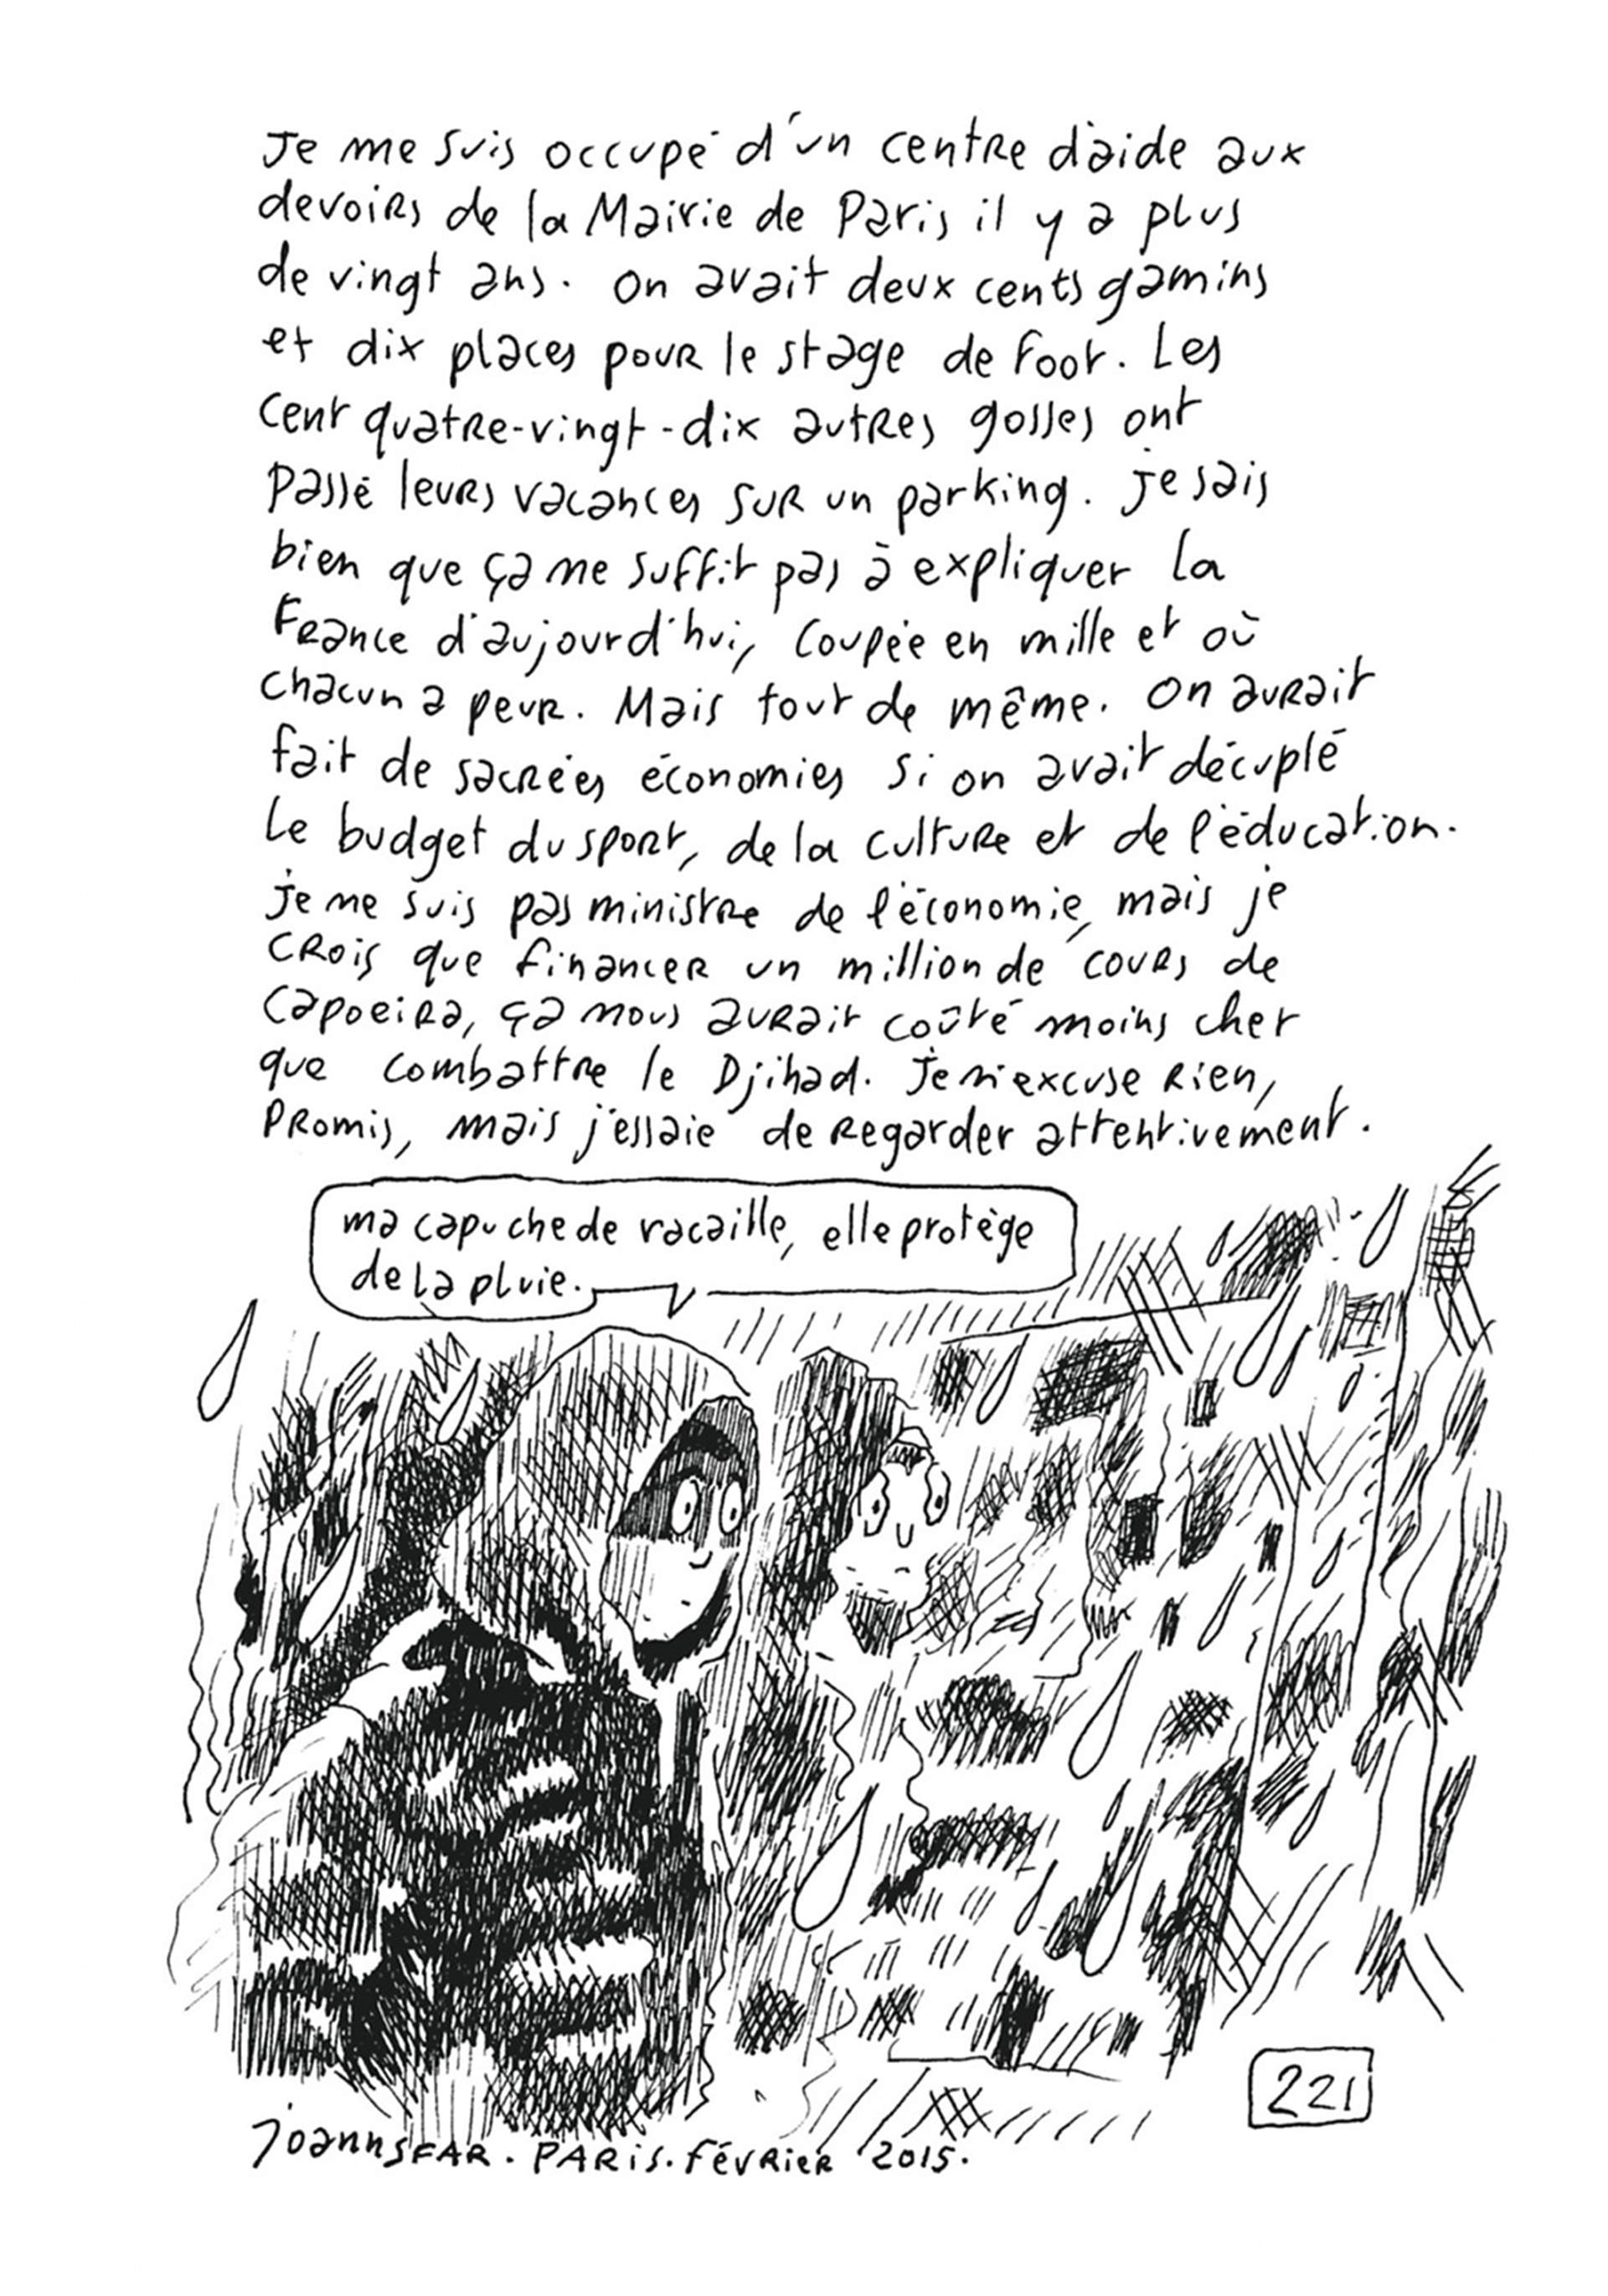 Je me suis occupé d'un centre d'aide aux
devoirs de la Mairie de Paris il y a plus
de vingt ans. On avait deux cents gamins
et dix places pour le stage de foot. Les
cent quatre-vingt-dix autres gosses ont
passé leurs vacances sur un parking. Je sais
bien que ça ne suffit pas à expliquer la
France d'aujourd'hui, coupée en mille et où
chacun a peur. Mais tout de même. On aurait
fait de sacrées économies si on avait décuplé
le budget du sport, de la culture et de l'éducation.
Je ne suis pas ministre de l'économie, mais je
crois que financer un million de cours de
capoeira, ça nous aurait coûté moins cher
que combattre le Djihad. Je n'excuse rien,
promis, mais j'essaie de regarder attentivement.
ma capuche de racaille, elle protège
de la pluie.
221
joann SFAR. PARIS. février 2015.